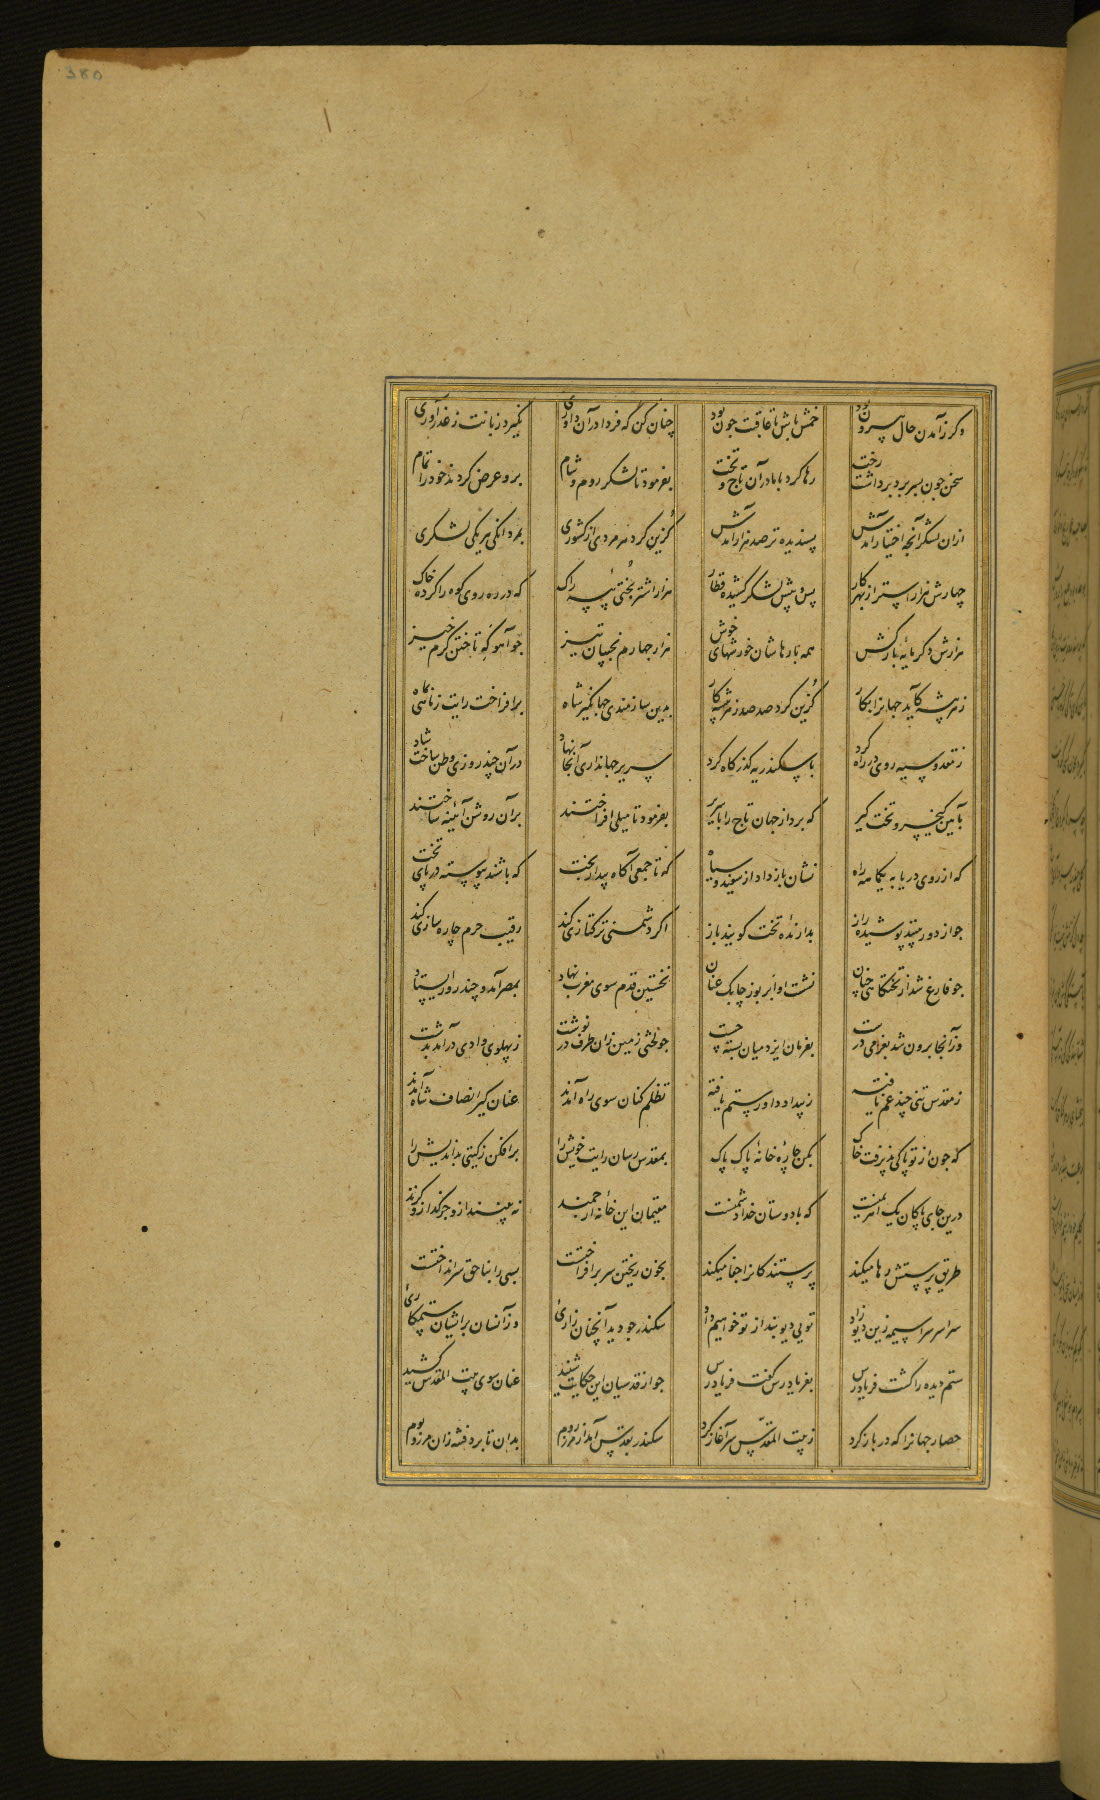 380
دگر زآمدن حال بیرون بود خمش باش تا عاقبت چون بود چنان کن که فردا در آن داوری نگیرد زبانت ز عذرآوری
سخن چون بسر برد برداشت رخت رها کرد بابا در آن تاج و تخت بفرمود تا لشکر روم و شام برو عرض کردند خود را تمام
ازان لشکر آنچه اختیار آمدش پسندیده تر صد هزار آمدش گزین کرد هر مردی از کشوری بمردانگی هر یکی لشکری
چهارش هزار استر از بهر کار پس و پیش لشکر کشیده قطار هزار اشتر بختی تیپه راک که در ره روی کوه را کرده خاک
هزارش دگر مایه بارکش همه بارهاشان خورشهای خوش هزار چهارم نجیبان تیز چو آهو که تاختن گرم خیز
ز هر پیشه کآید جهانرا بکار گزین کرد صد صد ز هر پیشه کار بدین سازمندی جهانگیر شاه برافراخت رایت ز ماهی بماه
ز مقدونیه روی در راه کرد باسکندریه گذرگاه کرد سریر جهانداری آنجا نهاد در آن چند روزی وطن ساخت شاد
بآیین کیخسرو تخت گیر که برد از جهان تاج را بر سریر بفرمود تا میلی افراختند بر آن روشن آئینه ساختند
که از روی دریا به یکماهه راه نشان باز داد از سپید و سیاه که تا جمعی آگاه بیدار بخت که باشند پیوسته در پای تخت
چو از دور بینند پوشیده راز بدارنده تخت گویند باز اگر دشمنی ترکتازی کند رقیب حرم چاره سازی کند
چو فارغ شد از تختگاهی چنان نشست او ابر بور چابک عنان نخستین قدم سوی مغرب نهاد بمصر آمد و چند روز ایستاد
وز آنجا برون شد بعزمی درست بفرمان ایزد میان بسته چست چو لختی زمین زان طرف در نوشت ز پهلوی وادی درآمد بدشت
ز مقدس تنی چند غم یافته ز بیداد داور ستم یافته تظلم کنان سوی راه آمدند عنان گیر انصاف شاه آمدند
که چون از تو پاکی پذیرفت خاک بکن چاره خانه پاک پاک بمقدس رسان رایت خویش را برافکن ز گیتی بداندیش را
درین جای پاکان یک اهریمنست که با دوستان خدا دشمنست مقیمان این خانه ارجمند نه بینند ازو جز گداز و گزند
طریق پرستش رها میکند پرستندگانرا جفا میکند بخون ریختن سر برافراختست بسی را بناحق سر انداختست
سراسر سراسیمه زین دیو زاد تویی دیوبند از تو خواهیم داد سکندر چو دید آنچنان زاریی وز آنسان بر ایشان ستمکاریی
ستم دیده را گشت فریادرس بفریادرس گفت فریادرس چو از قدسیان این حکایت شنید عنان سوی بیت المقدس کشید
حصار جهانرا که در باز کرد ز بیت المقدس سرآغاز کرد سکندر بمقدس آمد از مرز روم بدان تا برد فتنه زان مرز و بوم